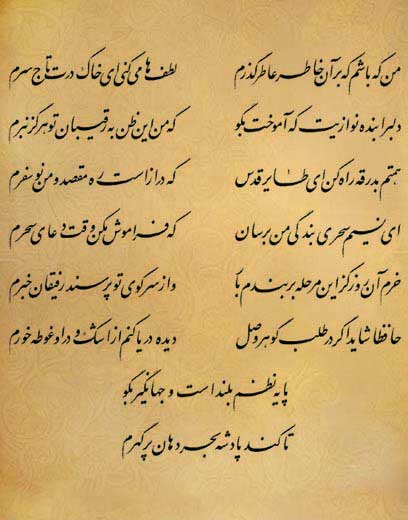 من که باشم که بر آن خاطر عاطر گذرم لطف ها می کنی ای خاک درت تاج سرم
دلبرا بنده نوازیت که آموخت بگو که من این ظن به رقیبان تو هرگز نبرم
همتم بدرقه راه کن ای طایر قدس که دراز است ره مقصد و من نوسفرم
ای نسیم سحری بندگی من برسان که فراموش مکن وقت دعای سحرم
خرم آن روز کز این مرحله بربندم بار و از سر کوی تو پرسند رفیقان خبرم
حافظا شاید اگر در طلب گوهر وصل دیده دریا کنم از اشک و در او غوطه خورم
پایه نظم بلند است و جهانگیر بگو
تا کند پادشه بحر دهان پر گهرم